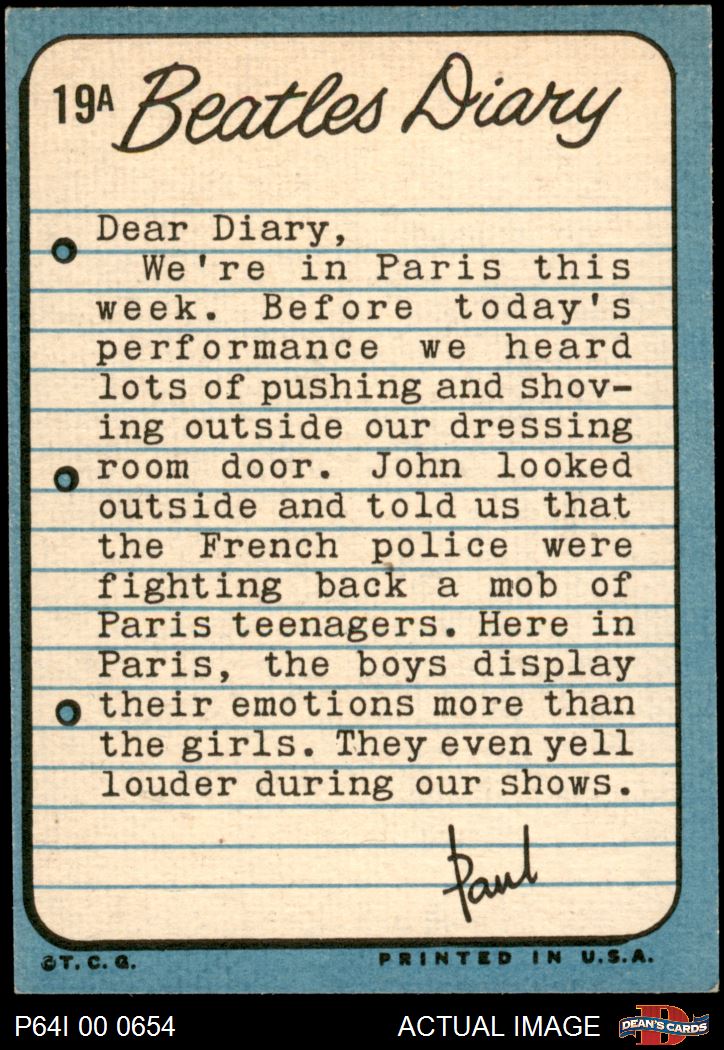 19A Beatles Diary
Dear Diary,
We're in Paris this
week. Before today's
performance we heard
lots of pushing and shov-
ing outside our dressing
room door. John looked
outside and told us that
the French police were
fighting back a mob of
Paris teenagers. Here in
Paris, the boys display
their emotions more than
the girls. They even yell
louder during our shows.
Paul
©T.C.G. PRINTED IN U.S.A.
P64I 00 0654 ACTUAL IMAGE D DEAN'S CARDS